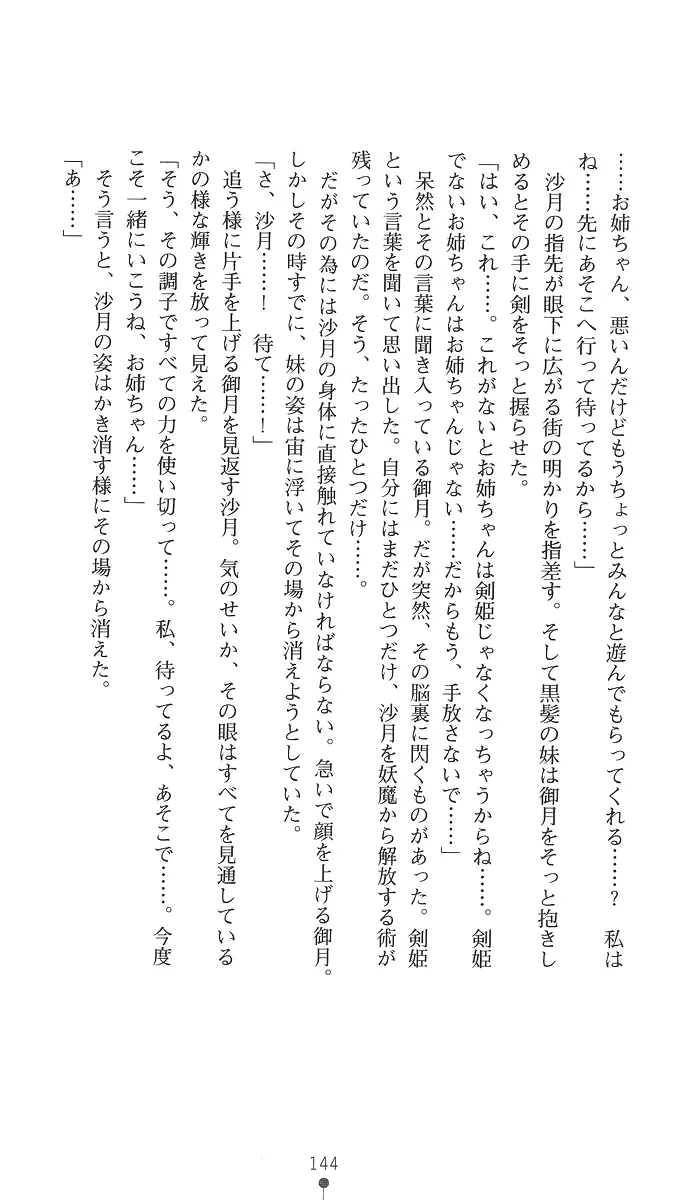 ……お姉ちゃん、悪いんだけどもうちょっとみんなと遊んでもらってくれる……？　私は
ね……先にあそこへ行って待ってるから……」
　沙月の指先が眼下に広がる街の明かりを指差す。そして黒髪の妹は御月をそっと抱きし
めるとその手に剣をそっと握らせた。
「はい、これ……。これがないとお姉ちゃんは剣姫じゃなくなっちゃうからね……。剣姫
でないお姉ちゃんはお姉ちゃんじゃない……だからもう、手放さないで……」
　呆然とその言葉に聞き入っている御月。だが突然、その脳裏に閃くものがあった。剣姫
という言葉を聞いて思い出した。自分にはまだひとつだけ、沙月を妖魔から解放する術が
残っていたのだ。そう、たったひとつだけ……。
　だがその為には沙月の身体に直接触れていなければならない。急いで顔を上げる御月。
しかしその時すでに、妹の姿は宙に浮いてその場から消えようとしていた。
「さ、沙月……！　待て……！」
　追う様に片手を上げる御月を見返す沙月。気のせいか、その眼はすべてを見通している
かの様な輝きを放って見えた。
「そう、その調子ですべての力を使い切って……。私、待ってるよ、あそこで……。今度
こそ一緒にいこうね、お姉ちゃん……」
　そう言うと、沙月の姿はかき消す様にその場から消えた。
「あ……」
144